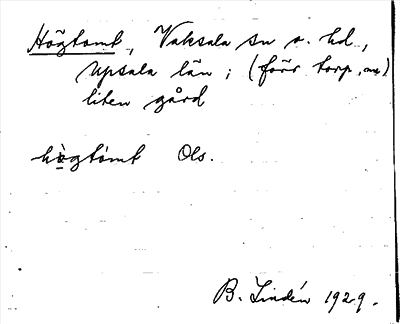 Högtomt, Vaksala sn o. hd,
Upsala län; (förr torp, nu)
liten gård
hö̀gtòmt Ols.
B. Lindén 1929.